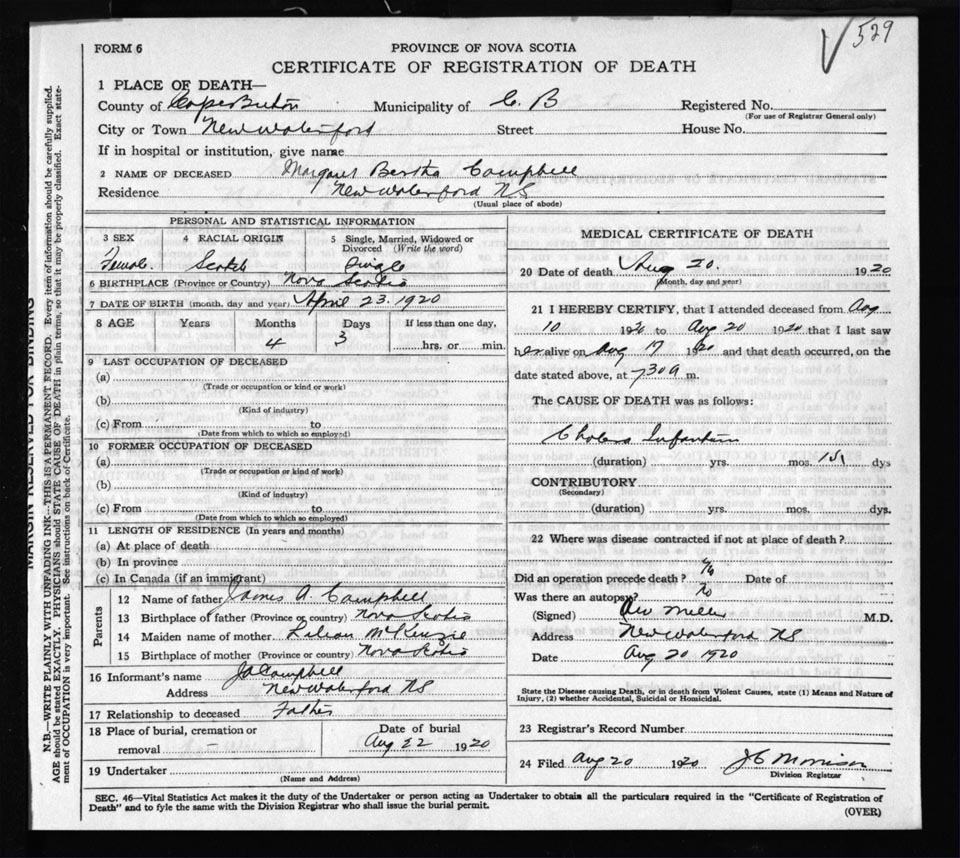 529
FORM 6
PROVINCE OF NOVA SCOTIA
CERTIFICATE OF REGISTRATION OF DEATH
1 PLACE OF DEATH—
County of Cape Breton Municipality of C. B Registered No.
(For use of Registrar General only)
City or Town New Waterford Street House No.
If in hospital or institution, give name
2 NAME OF DECEASED Margaret Bertha Campbell
Residence New Waterford N.S.
(Usual place of abode)
PERSONAL AND STATISTICAL INFORMATION
3 SEX 4 RACIAL ORIGIN 5 Single, Married, Widowed or
Divorced (Write the word)
Female. Scotch Single
6 BIRTHPLACE (Province or Country) Nova Scotia
7 DATE OF BIRTH (month, day and year) April 23. 1920
8 AGE Years Months Days If less than one day,
4 3 hrs. or min.
9 LAST OCCUPATION OF DECEASED
(a)
(Trade or occupation or kind or work)
(b)
(Kind of industry)
(c) From to
(Date from which to which so employed)
10 FORMER OCCUPATION OF DECEASED
(a)
(Trade or occupation or kind of work)
(b)
(Kind of industry)
(c) From to
(Date from which to which so employed)
11 LENGTH OF RESIDENCE (In years and months)
(a) At place of death
(b) In province
(c) In Canada (if an immigrant)
Parents
12 Name of father James A. Campbell
13 Birthplace of father (Province or country) Nova Scotia
14 Maiden name of mother Lilian McKenzie
15 Birthplace of mother (Province or country) Nova Scotia
16 Informant's name JA Campbell
Address New Waterford NS
17 Relationship to deceased Father
18 Place of burial, cremation or Date of burial
removal — Aug 22 1920
19 Undertaker
(Name and Address)
MEDICAL CERTIFICATE OF DEATH
20 Date of death Aug 20. 1920
(Month, day and year)
21 I HEREBY CERTIFY, that I attended deceased from Aug
10 1920 to Aug 20 1920 that I last saw
her alive on Aug 17 1920 and that death occurred, on the
date stated above, at 730 a m.
The CAUSE OF DEATH was as follows:
Cholera Infantum
(duration) yrs. mos. dys
CONTRIBUTORY
(Secondary)
(duration) yrs. mos. dys.
22 Where was disease contracted if not at place of death?
Did an operation precede death? No Date of
Was there an autopsy? No
(Signed) Miller M.D.
Address New Waterford NS
Date Aug 20 1920
State the Disease causing Death, or in death from Violent Causes, state (1) Means and Nature of
Injury, (2) whether Accidental, Suicidal or Homicidal.
23 Registrar's Record Number
24 Filed Aug 20 1920 J C Morrison
Division Registrar
SEC. 46—Vital Statistics Act makes it the duty of the Undertaker or person acting as Undertaker to obtain all the particulars required in the "Certificate of Registration of
Death" and to fyle the same with the Division Registrar who shall issue the burial permit.
(OVER)
MARGIN RESERVED FOR BINDING
N.B.—WRITE PLAINLY WITH UNFADING INK—THIS IS A PERMANENT RECORD. Every item of information should be carefully supplied.
AGE should be stated EXACTLY. PHYSICIANS should STATE CAUSE OF DEATH in plain terms, so that it may be properly classified. Exact state-
ment of OCCUPATION is very important. See instructions on back of Certificate.